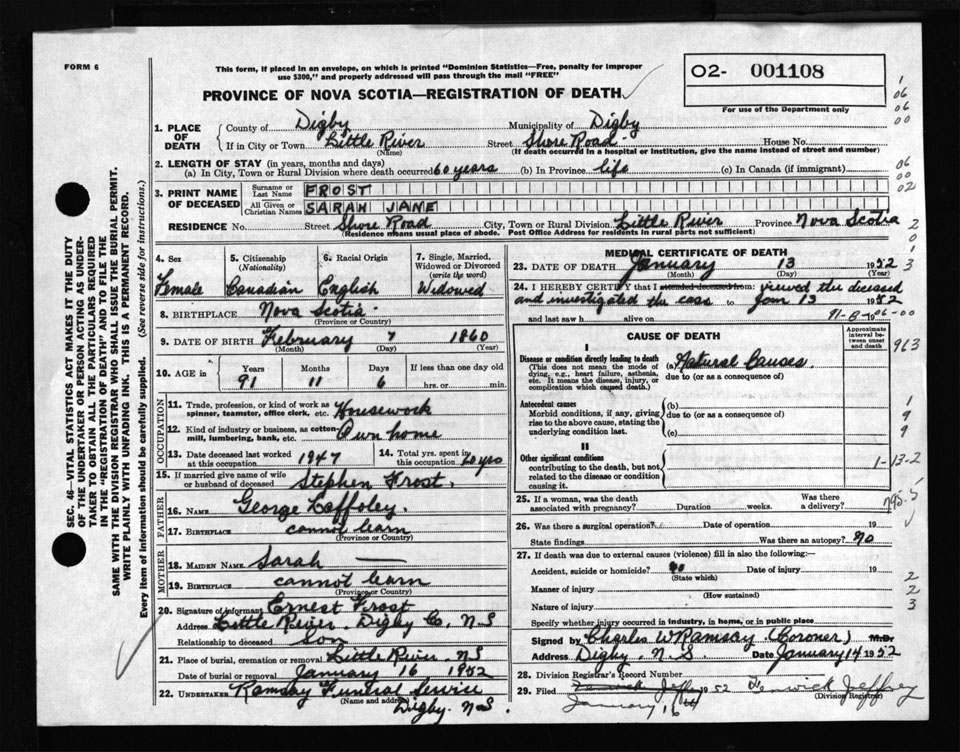 FORM 6
This form, if placed in an envelope, on which is printed "Dominion Statistics—Free, penalty for improper
use $300," and properly addressed will pass through the mail "FREE"
O2- 001108
For use of the Department only
PROVINCE OF NOVA SCOTIA—REGISTRATION OF DEATH
1. PLACE OF DEATH
County of Digby Municipality of Digby
If in City or Town Little River (Name) Street Shore Road House No.
(If death occurred in a hospital or institution, give the name instead of street and number)
2. LENGTH OF STAY (in years, months and days)
(a) In City, Town or Rural Division where death occurred 60 years (b) In Province life (c) In Canada (if immigrant)
3. PRINT NAME OF DECEASED
Surname or Last Name FROST
All Given or Christian Names SARAH JANE
RESIDENCE No. Street Shore Road City, Town or Rural Division Little River Province Nova Scotia
(Residence means usual place of abode. Post Office Address for residents in rural parts not sufficient)
4. Sex
Female
5. Citizenship (Nationality)
Canadian
6. Racial Origin
English
7. Single, Married, Widowed or Divorced (write the word)
Widowed
8. BIRTHPLACE Nova Scotia
(Province or Country)
9. DATE OF BIRTH February 7 1860
(Month) (Day) (Year)
10. AGE in Years Months Days If less than one day old
91 11 6 hrs. or min.
OCCUPATION
11. Trade, profession, or kind of work as spinner, teamster, office clerk, etc. Housework
12. Kind of industry or business, as cotton-mill, lumbering, bank, etc. Own home
13. Date deceased last worked at this occupation 1947
14. Total yrs. spent in this occupation 60 yrs
15. If married give name of wife or husband of deceased Stephen Frost.
FATHER
16. NAME George Laffoley.
17. BIRTHPLACE cannot learn
(Province or Country)
MOTHER
18. MAIDEN NAME Sarah —
19. BIRTHPLACE cannot learn
(Province or Country)
20. Signature of informant Ernest Frost
Address Little River. Digby Co, N.S
Relationship to deceased Son
21. Place of burial, cremation or removal Little River, NS
Date of burial or removal January 16 1952
22. UNDERTAKER Ramsay Funeral Service
(Name and address) Digby. N.S.
MEDICAL CERTIFICATE OF DEATH
23. DATE OF DEATH January 13 1952
(Month) (Day) (Year)
24. I HEREBY CERTIFY that I attended deceased from: viewed the deceased
and investigated the case to Jan 13 1952
and last saw h alive on 19
91-B- 06-00
CAUSE OF DEATH
Approximate interval between onset and death
I
Disease or condition directly leading to death
(This does not mean the mode of dying, e.g., heart failure, asthenia, etc. It means the disease, injury, or complication which caused death.)
(a) Natural Causes.
due to (or as a consequence of)
Antecedent causes
Morbid conditions, if any, giving rise to the above cause, stating the underlying condition last.
(b)
due to (or as a consequence of)
(c)
II
Other significant conditions
contributing to the death, but not related to the disease or condition causing it.
25. If a woman, was the death associated with pregnancy? Duration weeks. Was there a delivery?
26. Was there a surgical operation? Date of operation 19
State findings Was there an autopsy? no
27. If death was due to external causes (violence) fill in also the following:—
Accident, suicide or homicide? no Date of injury 19
(State which)
Manner of injury
(How sustained)
Nature of injury
Specify whether injury occurred in industry, in home, or in public place
Signed by Charles W Ramsay (Coroner) M.D.
Address Digby, N.S. Date January 14 1952
28. Division Registrar's Record Number
29. Filed 1952 Fenwick Jeffrey
January 16
(Division Registrar)
SEC. 46—VITAL STATISTICS ACT MAKES IT THE DUTY
OF THE UNDERTAKER OR PERSON ACTING AS UNDERTAKER TO OBTAIN ALL THE PARTICULARS REQUIRED
IN THE "REGISTRATION OF DEATH" AND TO FILE THE
SAME WITH THE DIVISION REGISTRAR WHO SHALL ISSUE THE BURIAL PERMIT.
WRITE PLAINLY WITH UNFADING INK. THIS IS A PERMANENT RECORD.
Every item of information should be carefully supplied. (See reverse side for instructions.)
1
06
06
00
06
00
02
2
0
1
3
963
1
9
9
1-13-2
795.5
2
2
3